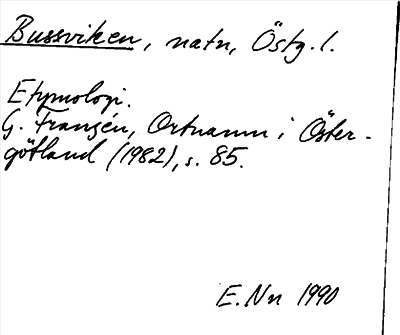 Bussviken, natn, Östg.l.
Etymologi.
G. Franzén, Ortnamn i Öster-
götland (1982), s. 85.
E. Nn 1990